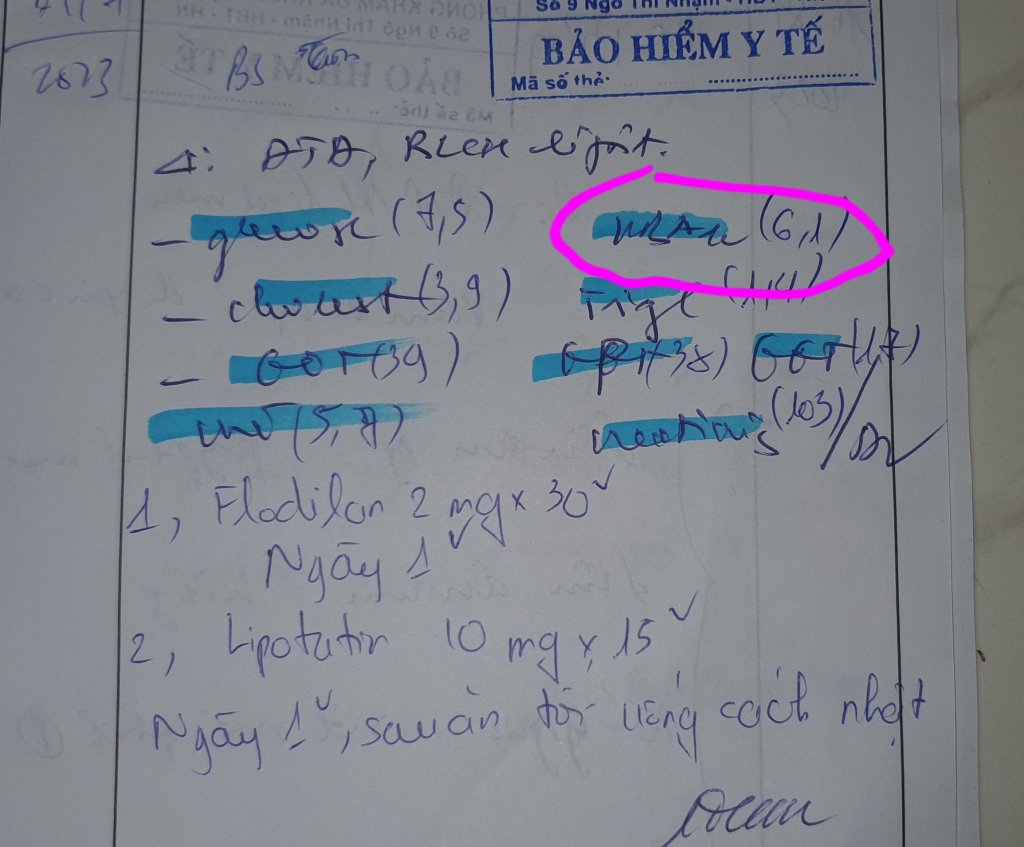 Số 9 Ngô Thì Nhậm - HBT - HN
BẢO HIỂM Y TẾ
Mã số thẻ:
2023 BS
Δ: ĐTĐ, RLCH lipit.
- glucose (7,5) HbA1c (6,1)
- cholest (3,9) Trigl (1,4)
- GOT (39) GPT (38) GGT (1,7)
urê (5,7) creatinin (103)
1, Flodilan 2 mg x 30v
Ngày 1v
2, Lipotatin 10 mg x 15v
Ngày 1v, sau ăn tối uống cách nhật